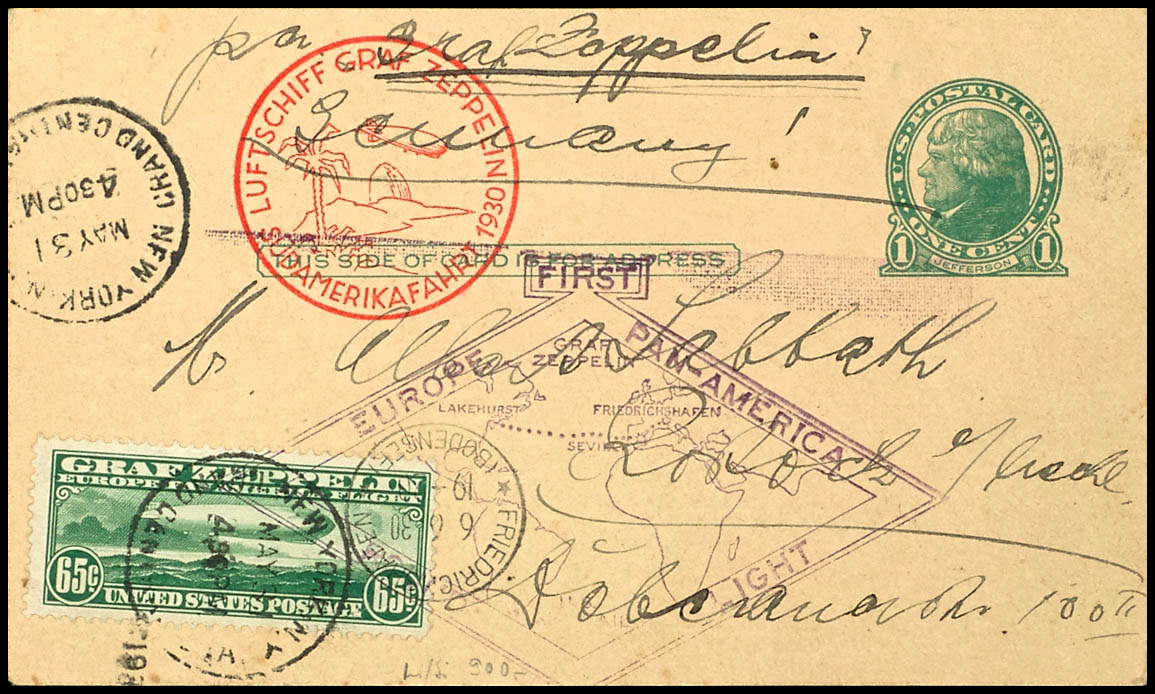 "Graf Zeppelin"
Germany!
LUFTSCHIFF GRAF ZEPPELIN 1930
SÜDAMERIKAFAHRT
U·S·POSTAL CARD
1 ONE CENT 1
JEFFERSON
NEW YORK N.
GRAND CENTRAL
MAY 31
430PM
THIS SIDE OF CARD IS FOR ADDRESS
FIRST
EUROPE PAN-AMERICA
GRAF
ZEPPELIN
LAKEHURST FRIEDRICHSHAFEN
SEVI
FLIGHT
Rostock
GRAF ZEPPELIN
EUROPE PAN-AMERICA FLIGHT
65c 65c
UNITED STATES POSTAGE
NEW YORK N.Y.
MAY
FRIEDRICHSHAFEN
(BODENSEE)
6 6 30
19
100 II
900-